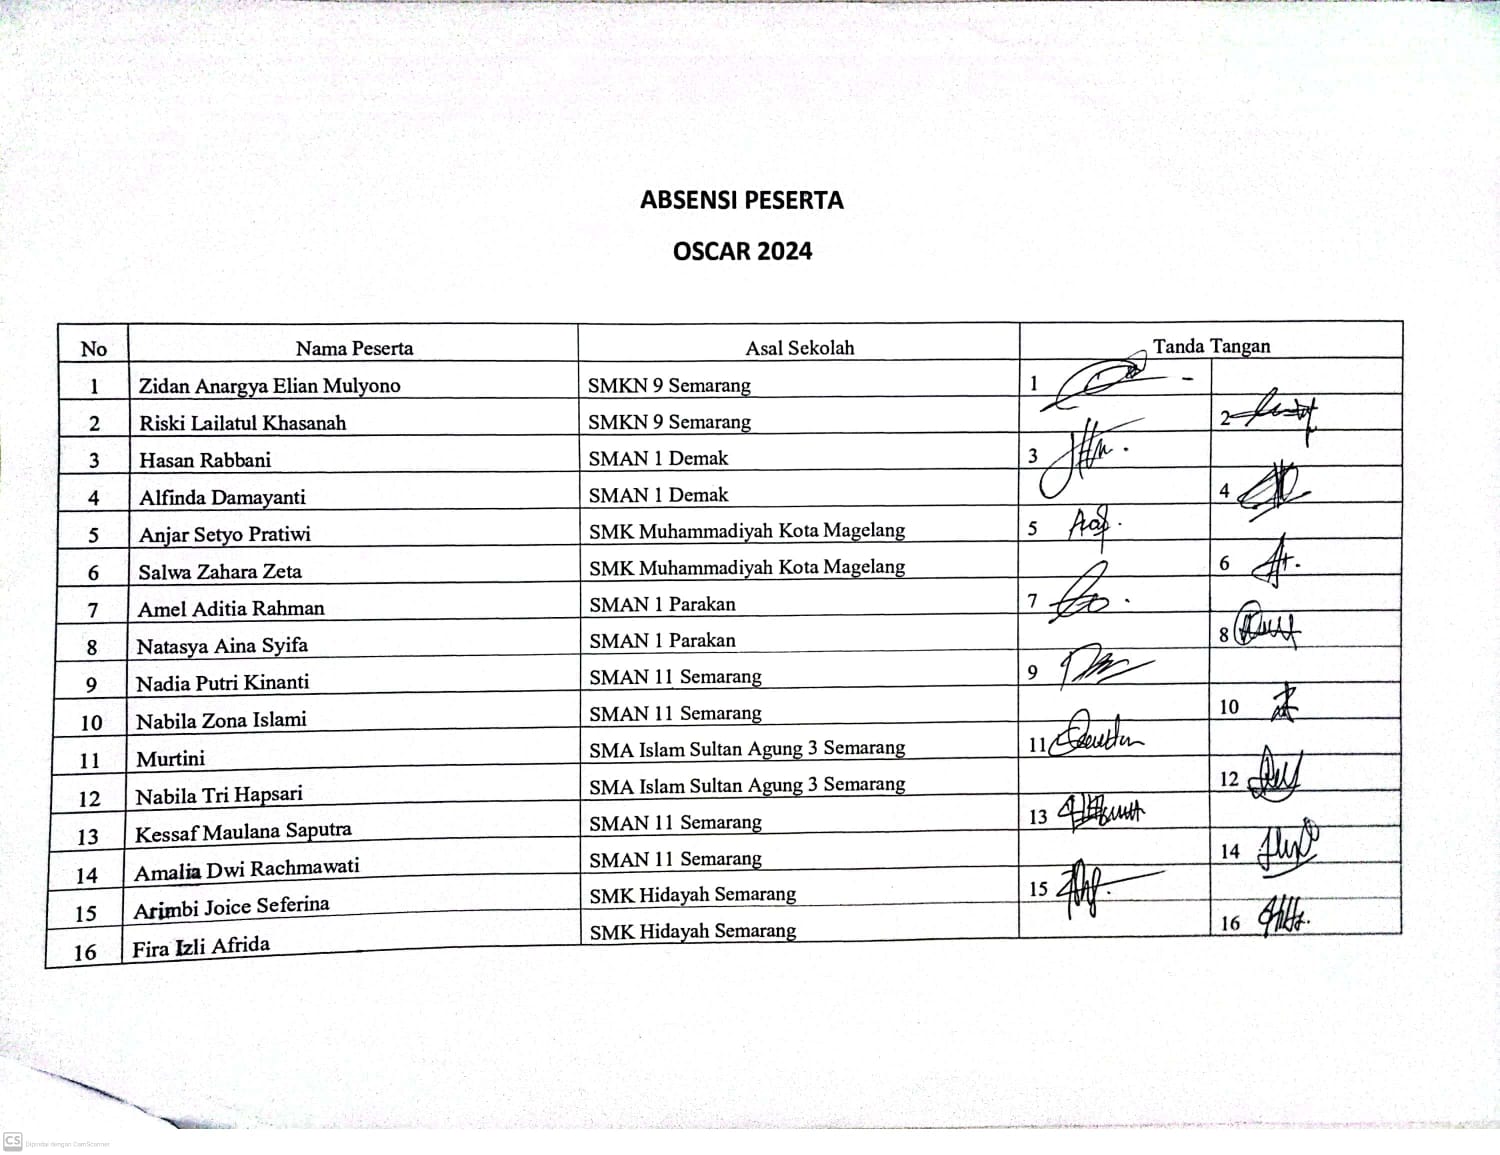 ABSENSI PESERTA
OSCAR 2024
No Nama Peserta Asal Sekolah Tanda Tangan
1 Zidan Anargya Elian Mulyono SMKN 9 Semarang 1
2 Riski Lailatul Khasanah SMKN 9 Semarang 2
3 Hasan Rabbani SMAN 1 Demak 3
4 Alfinda Damayanti SMAN 1 Demak 4
5 Anjar Setyo Pratiwi SMK Muhammadiyah Kota Magelang 5
6 Salwa Zahara Zeta SMK Muhammadiyah Kota Magelang 6
7 Amel Aditia Rahman SMAN 1 Parakan 7
8 Natasya Aina Syifa SMAN 1 Parakan 8
9 Nadia Putri Kinanti SMAN 11 Semarang 9
10 Nabila Zona Islami SMAN 11 Semarang 10
11 Murtini SMA Islam Sultan Agung 3 Semarang 11
12 Nabila Tri Hapsari SMA Islam Sultan Agung 3 Semarang 12
13 Kessaf Maulana Saputra SMAN 11 Semarang 13
14 Amalia Dwi Rachmawati SMAN 11 Semarang 14
15 Arimbi Joice Seferina SMK Hidayah Semarang 15
16 Fira Izli Afrida SMK Hidayah Semarang 16
CS Dipindai dengan CamScanner